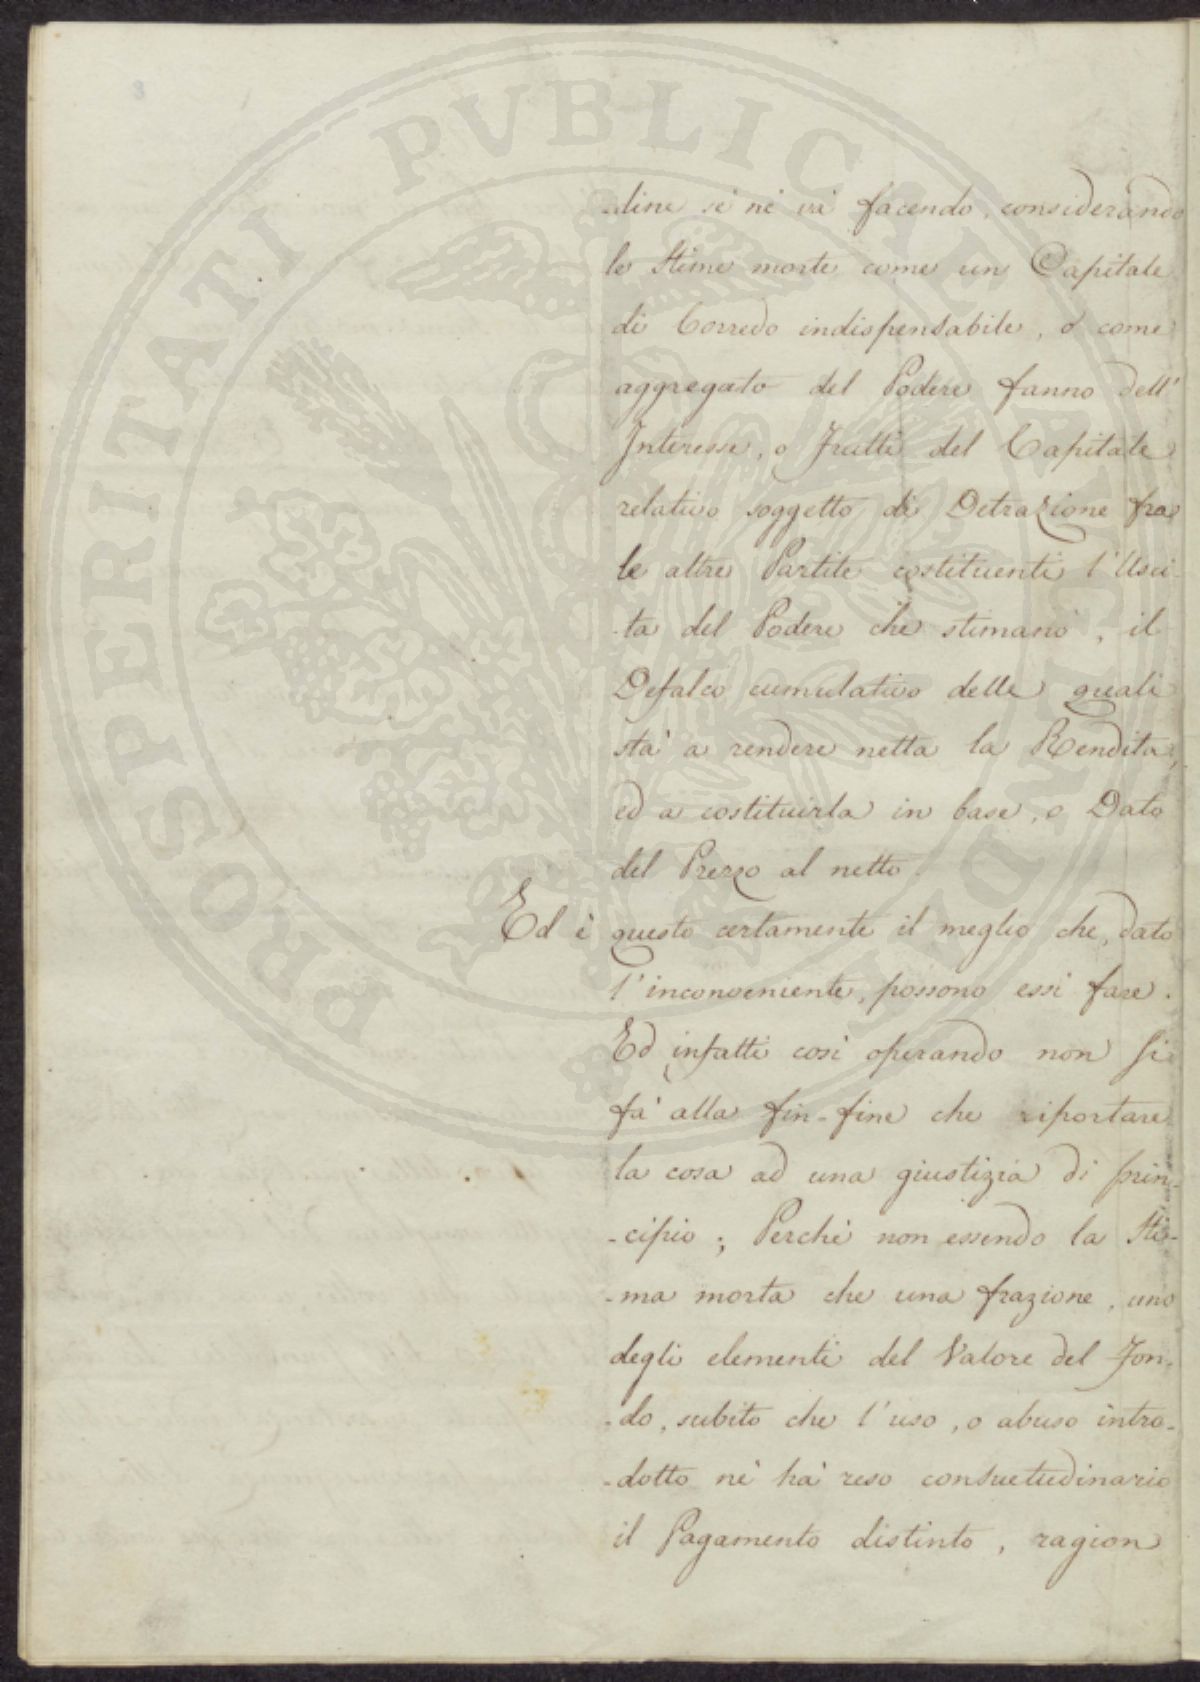 PROSPERITATI PVBLICAE AVGENDAE
-dine si nè và facendo, considerando
le Stime morte come un Capitale
di Corredo indispensabile, o come
aggregato del Podere fanno dell'
Interesse, o Frutti del Capitale
relativo soggetto di Detrazione fra
le altre Partite costituenti l'Usci-
-ta del Podere che stimano, il
Defalco cumulativo delle quali
stà a rendere netta la Rendita,
ed a costituirla in base, o Dato
del Prezzo al netto.
Ed è questo certamente il meglio che, dato
l'inconveniente, possono essi fare.
Ed infatti così operando non si
fà alla fin-fine che riportare
la cosa ad una giustizia di prin-
-cipio; Perchè non essendo la Sti-
-ma morta che una frazione, uno
degli elementi del Valore del Fon-
-do, subito che l'uso, o abuso intro-
-dotto nè hà reso consuetudinario
il Pagamento distinto, ragion